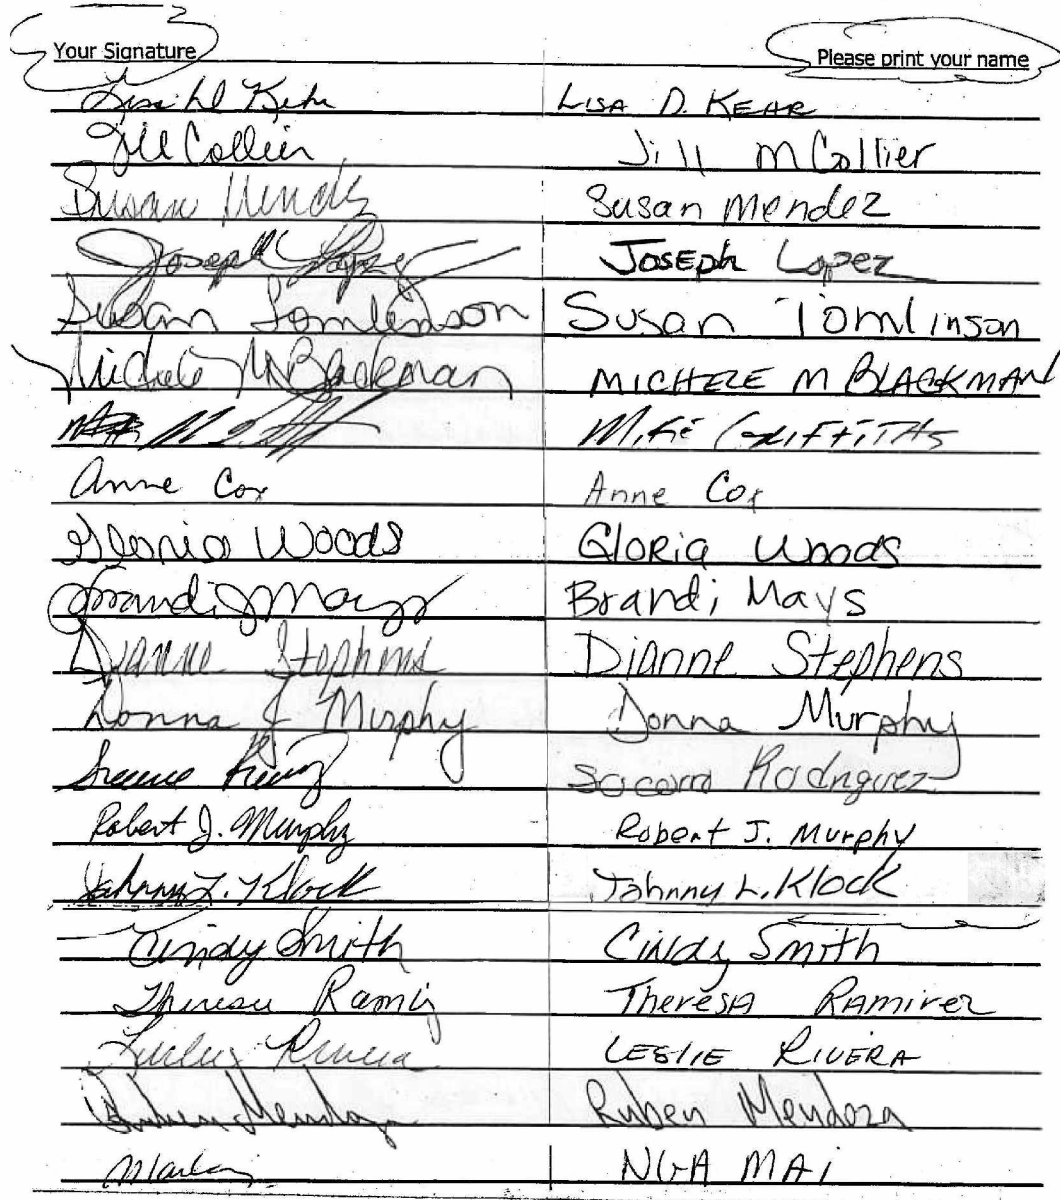 Your Signature Please print your name
Lisa D. Kear LISA D. KEAR
Jill Collier Jill M Collier
Susan Mendez Susan Mendez
Joseph Lopez JOSEPh Lopez
Susan Tomlinson Susan Tomlinson
Michele M Blackman MICHELE M BLACKMAN
MiKE GRIFFITHS
Anne Cox Anne Cox
Gloria Woods GLORia Woods
Brandi J Mays Brandi Mays
Dianne Stephens Dianne Stephens
Donna J Murphy Donna Murphy
Socorro Rodriguez
Robert J. Murphy Robert J. Murphy
Johnny L. Klock Johnny L. Klock
Cindy Smith Cindy Smith
Theresa Ramirez TheresA RAMirez
Leslie Rivera LESLIE RIVERA
Ruben Mendoza Ruben Mendoza
NGA MAi